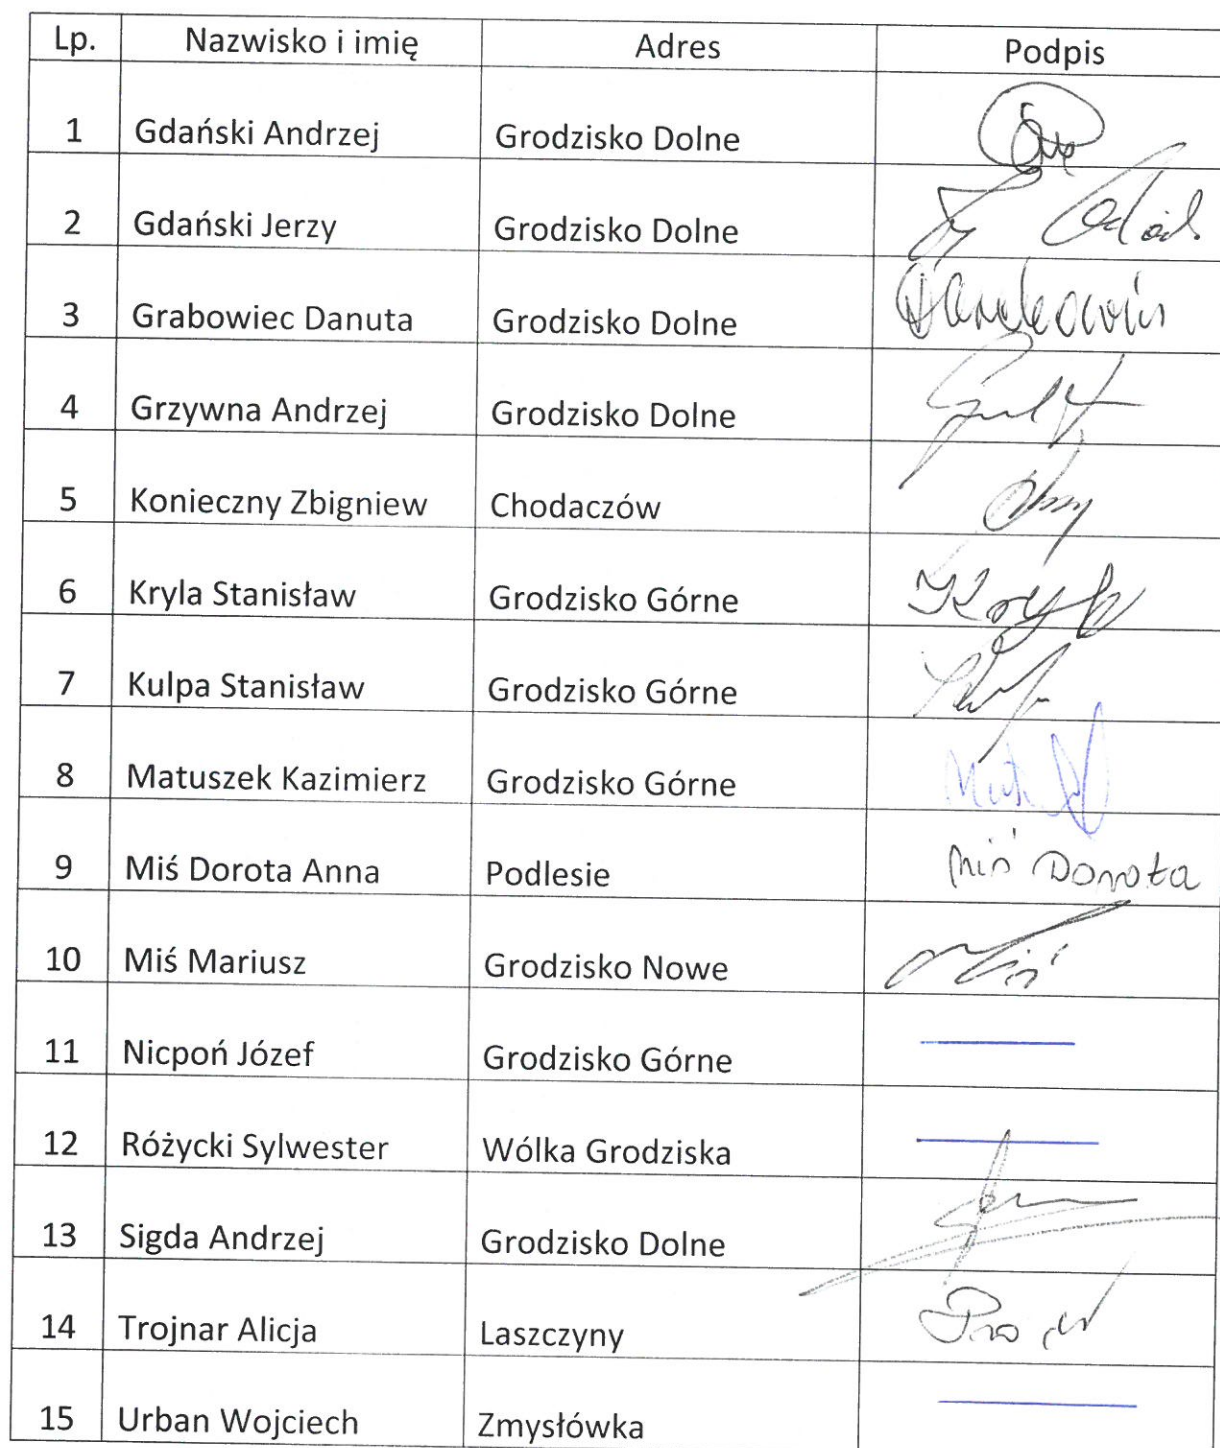 Lp. Nazwisko i imię Adres Podpis
1 Gdański Andrzej Grodzisko Dolne
2 Gdański Jerzy Grodzisko Dolne
3 Grabowiec Danuta Grodzisko Dolne
4 Grzywna Andrzej Grodzisko Dolne
5 Konieczny Zbigniew Chodaczów
6 Kryla Stanisław Grodzisko Górne
7 Kulpa Stanisław Grodzisko Górne
8 Matuszek Kazimierz Grodzisko Górne
9 Miś Dorota Anna Podlesie Miś Dorota
10 Miś Mariusz Grodzisko Nowe Miś
11 Nicpoń Józef Grodzisko Górne
12 Różycki Sylwester Wólka Grodziska
13 Sigda Andrzej Grodzisko Dolne
14 Trojnar Alicja Laszczyny
15 Urban Wojciech Zmysłówka